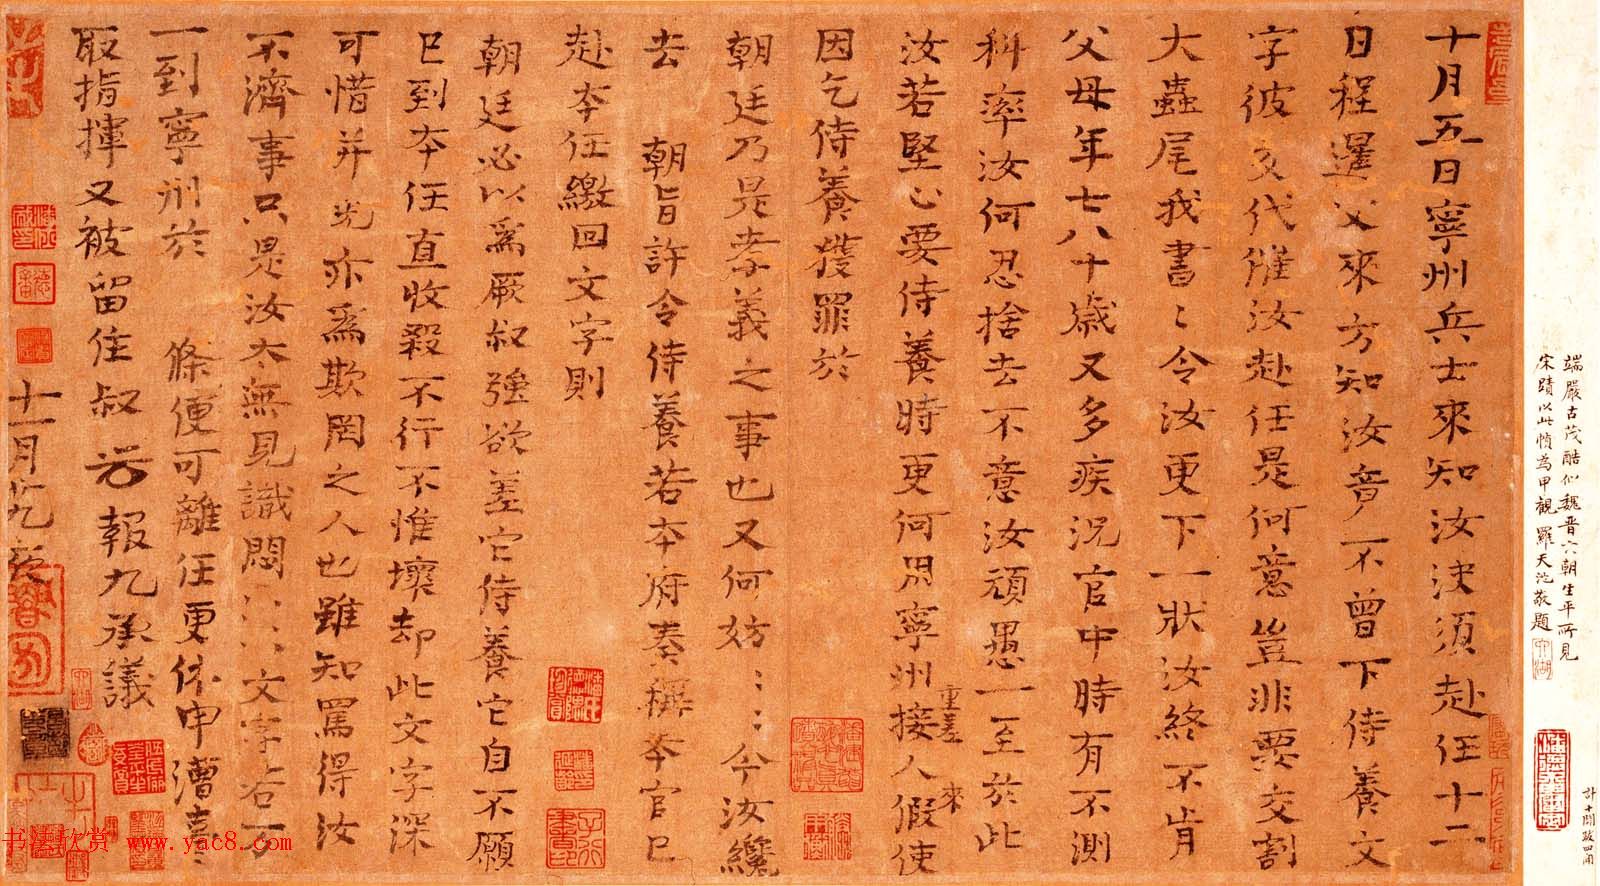 端嚴古茂酷似魏晉六朝生平所見
宋蹟以此幀為甲觀 羅天池敬題
計十開跋四開
十月五日寧州兵士來知汝決須赴任十二
日程暹父來方知汝意不曾下侍養文
字彼交代催汝赴任是何意豈非要交割
大蟲尾我書〻令汝更下一狀汝終不肯
父母年七八十歲又多疾況官中時有不測
科率汝何忍捨去不意汝頑愚一至於此
重差 來
汝若堅心要侍養時更何用寧州接人假使
因乞侍養獲罪於
朝廷乃是孝義之事也又何妨〻〻今汝纔
去 朝旨許令侍養若本府奏稱本官已
赴本任繳回文字則
朝廷必以為厥叔強欲差它侍養它自不願
已到本任直收殺不行不惟壞却此文字深
可惜并兇亦為欺罔之人也雖知罵得汝
不濟事只是汝太無見識悶〻〻文字若可
一到寧州於 條便可離任更依申漕臺
取指揮又被留住叔 咨報九承議
十一月廿九夜
书法欣赏 www.yac8.com